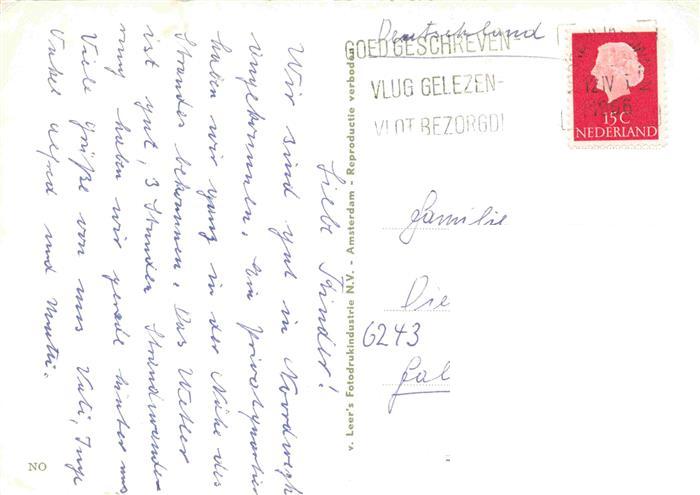 Liebe Kinder!
Wir sind gut in Noordwijk
angekommen. Ein Privatquartier
haben wir ganz in der Nähe des
Strandes bekommen. Das Wetter
ist gut, 3 Stunden Strandwande-
rung haben wir gerade hinter uns.
Viele Grüße von uns Vati, Inge
Onkel Alfred und Mutti.
NO
v. Leer's Fotodrukindustrie N.V. - Amsterdam - Reproductie verboden
Deutschland
GOED GESCHREVEN
VLUG GELEZEN-
VLOT BEZORGD!
12 IV
1966
15C
NEDERLAND
Familie
Die
6243
Gal